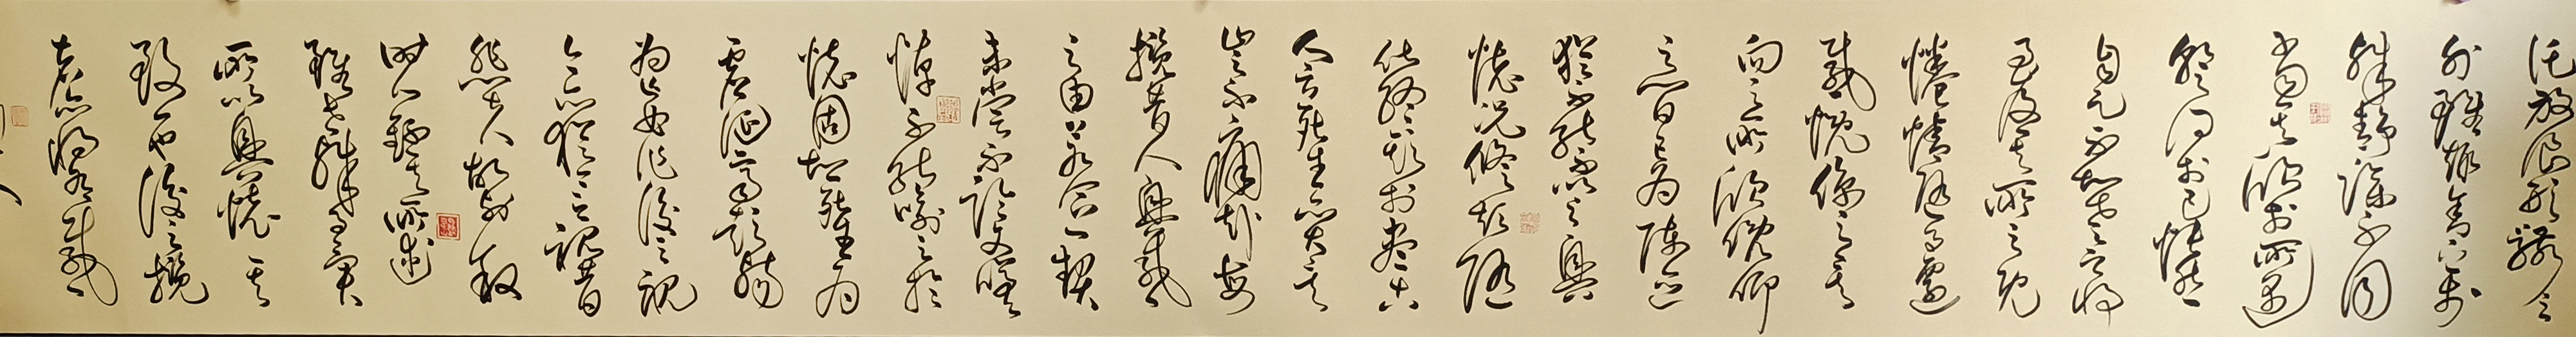 託放浪形骸之
外雖趣舍萬
殊靜躁不同
當其欣於所遇
暫得於己快然
自足不知老之將
至及其所之既
倦情隨事遷
感慨係之矣
向之所欣俛仰
之間已為陳迹
猶不能不以之興
懷況脩短隨
化終期於盡古
人云死生亦大矣
豈不痛哉每
攬昔人興感
之由若合一契
未嘗不臨文嗟
悼不能喻之於
懷固知一死生為
虛誕齊彭殤
為妄作後之視
今亦猶今之視昔
悲夫故列敘
時人錄其所述
雖世殊事異
所以興懷其
致一也後之攬
者亦將有感